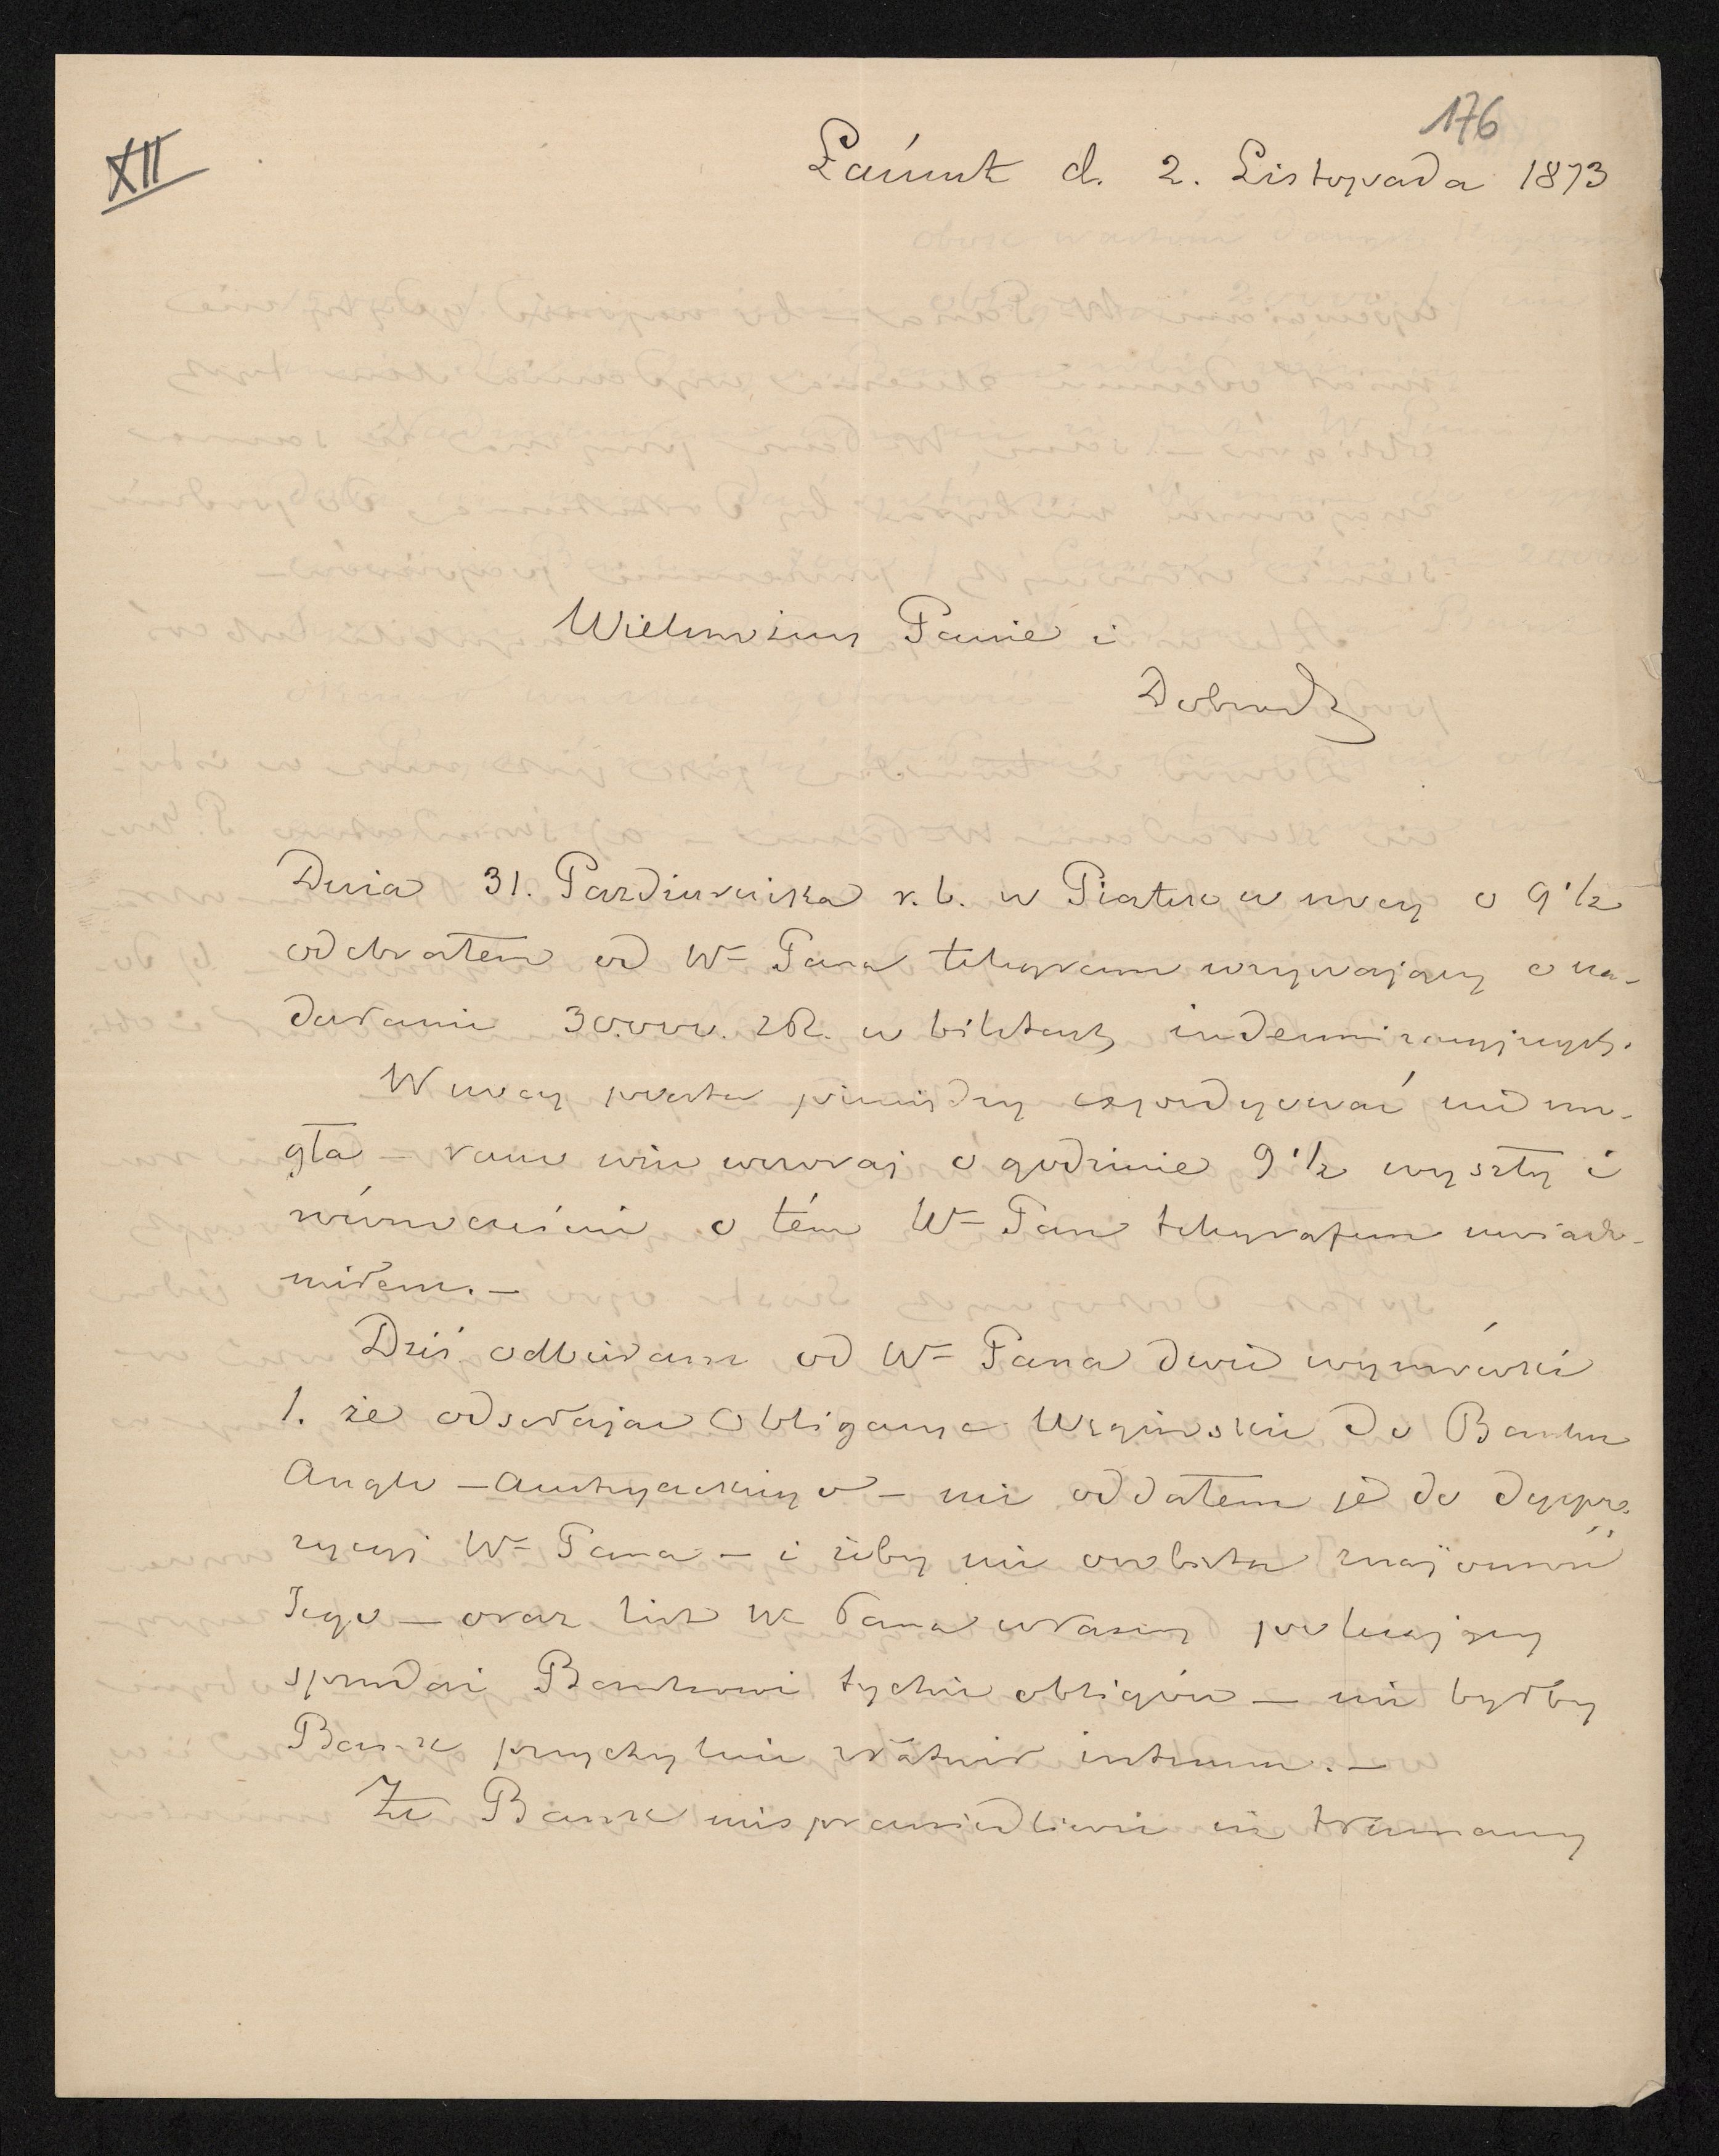 176
XII
Łańcut d. 2. Listopada 1873
Wielmożny Panie i
Dobrodz
Dnia 31. Pazdziernika r. b. w Piatek w nocy o 9 1/2
odebrałem od W= Pana telegram wzywający o na-
dasłanie 30.000. zR. w biletach indemnizacyjnych.
W nocy poczta pieniędzy expedyować nie mo-
gła – rano więc wczoraj o godzinie 9 1/2 wyszły i
równocześnie o tém W= Pan telegrafem uwiado-
miłem. –
Dziś odbieram od W= Pana dwie wymówki
1. że odsełając Obligacye Węgierskie do Banku
Anglo – Austryackiego – nie oddałem je do dyspo-
zycyi W= Pana – i żeby nie osobista znajomość
Jego – oraz list W= Pana własny polecający
sprzedaż Bankowi tychże obligów – nie byłby
Bank przychylnie załatwił interesu. –
Że Bank niesprawiedliwie się tłumaczy